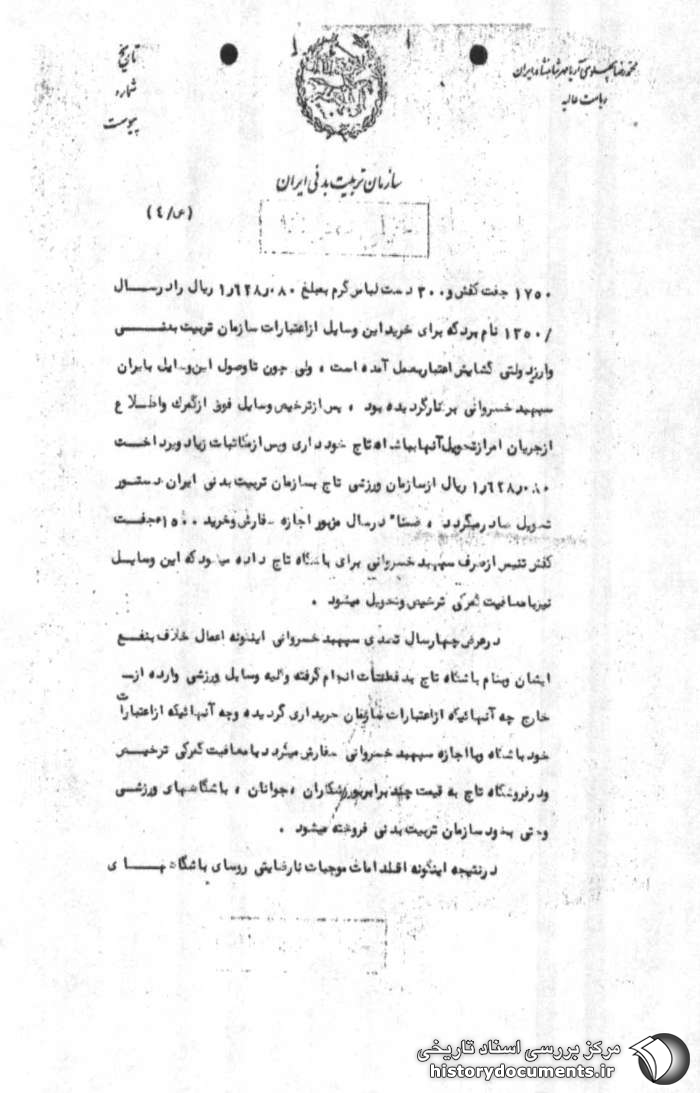 محمدرضا پهلوی آریامهر شاهنشاه ایران
ریاست عالیه
تاریخ
شماره
پیوست
سازمان تربیت بدنی ایران
(ص/٤)
۱۷۵۰ جفت کفش و ۳۰۰ دست لباس گرم بمبلغ ۱٫۶۲۸٫۰۸۰ ریال را در سال
/۱۳۵۰ نام برد که برای خرید این وسایل از اعتبارات سازمان تربیت بدنی
وارز دولتی گشایش اعتبار بعمل آمده است ، ولی چون تا وصول این وسایل بایران
سپهبد خسروانی برکنار گردیده بود ، پس از ترخیص وسایل فوق از گمرک واطلاع
از جریان امر از تحویل آنها بباشگاه تاج خودداری وپس از مکاتبات زیاد وپرداخت
۱٫۶۲۸٫۰۸۰ ریال از سازمان ورزشی تاج بسازمان تربیت بدنی ایران دستور
تحویل صادر میگردد ، ضمناً در سال مزبور اجازه سفارش وخرید ۱۵۰۰ جفت
کفش تنیس از طرف سپهبد خسروانی برای باشگاه تاج داده میشود که این وسایل
نیز با معافیت گمرکی ترخیص وتحویل میشود .
در عرض چهار سال تصدی سپهبد خسروانی اینگونه اعمال خلاف بنفع
ایشان وبنام باشگاه تاج بدفعات انجام گرفته وکلیه وسایل ورزشی وارده از
خارج چه آنهائیکه از اعتبارات سازمان خریداری گردیده وچه آنهائیکه از اعتبارات
خود باشگاه وبا اجازه سپهبد خسروانی سفارش میگردد با معافیت گمرکی ترخیص
ودر فروشگاه تاج به قیمت چند برابر بورزشکاران ، جوانان ، باشگاههای ورزشی
وحتی بخود سازمان تربیت بدنی فروخته میشود .
در نتیجه اینگونه اقدامات موجبات نارضایتی روسای باشگاههای
مرکز بررسی اسناد تاریخی
historydocuments.ir